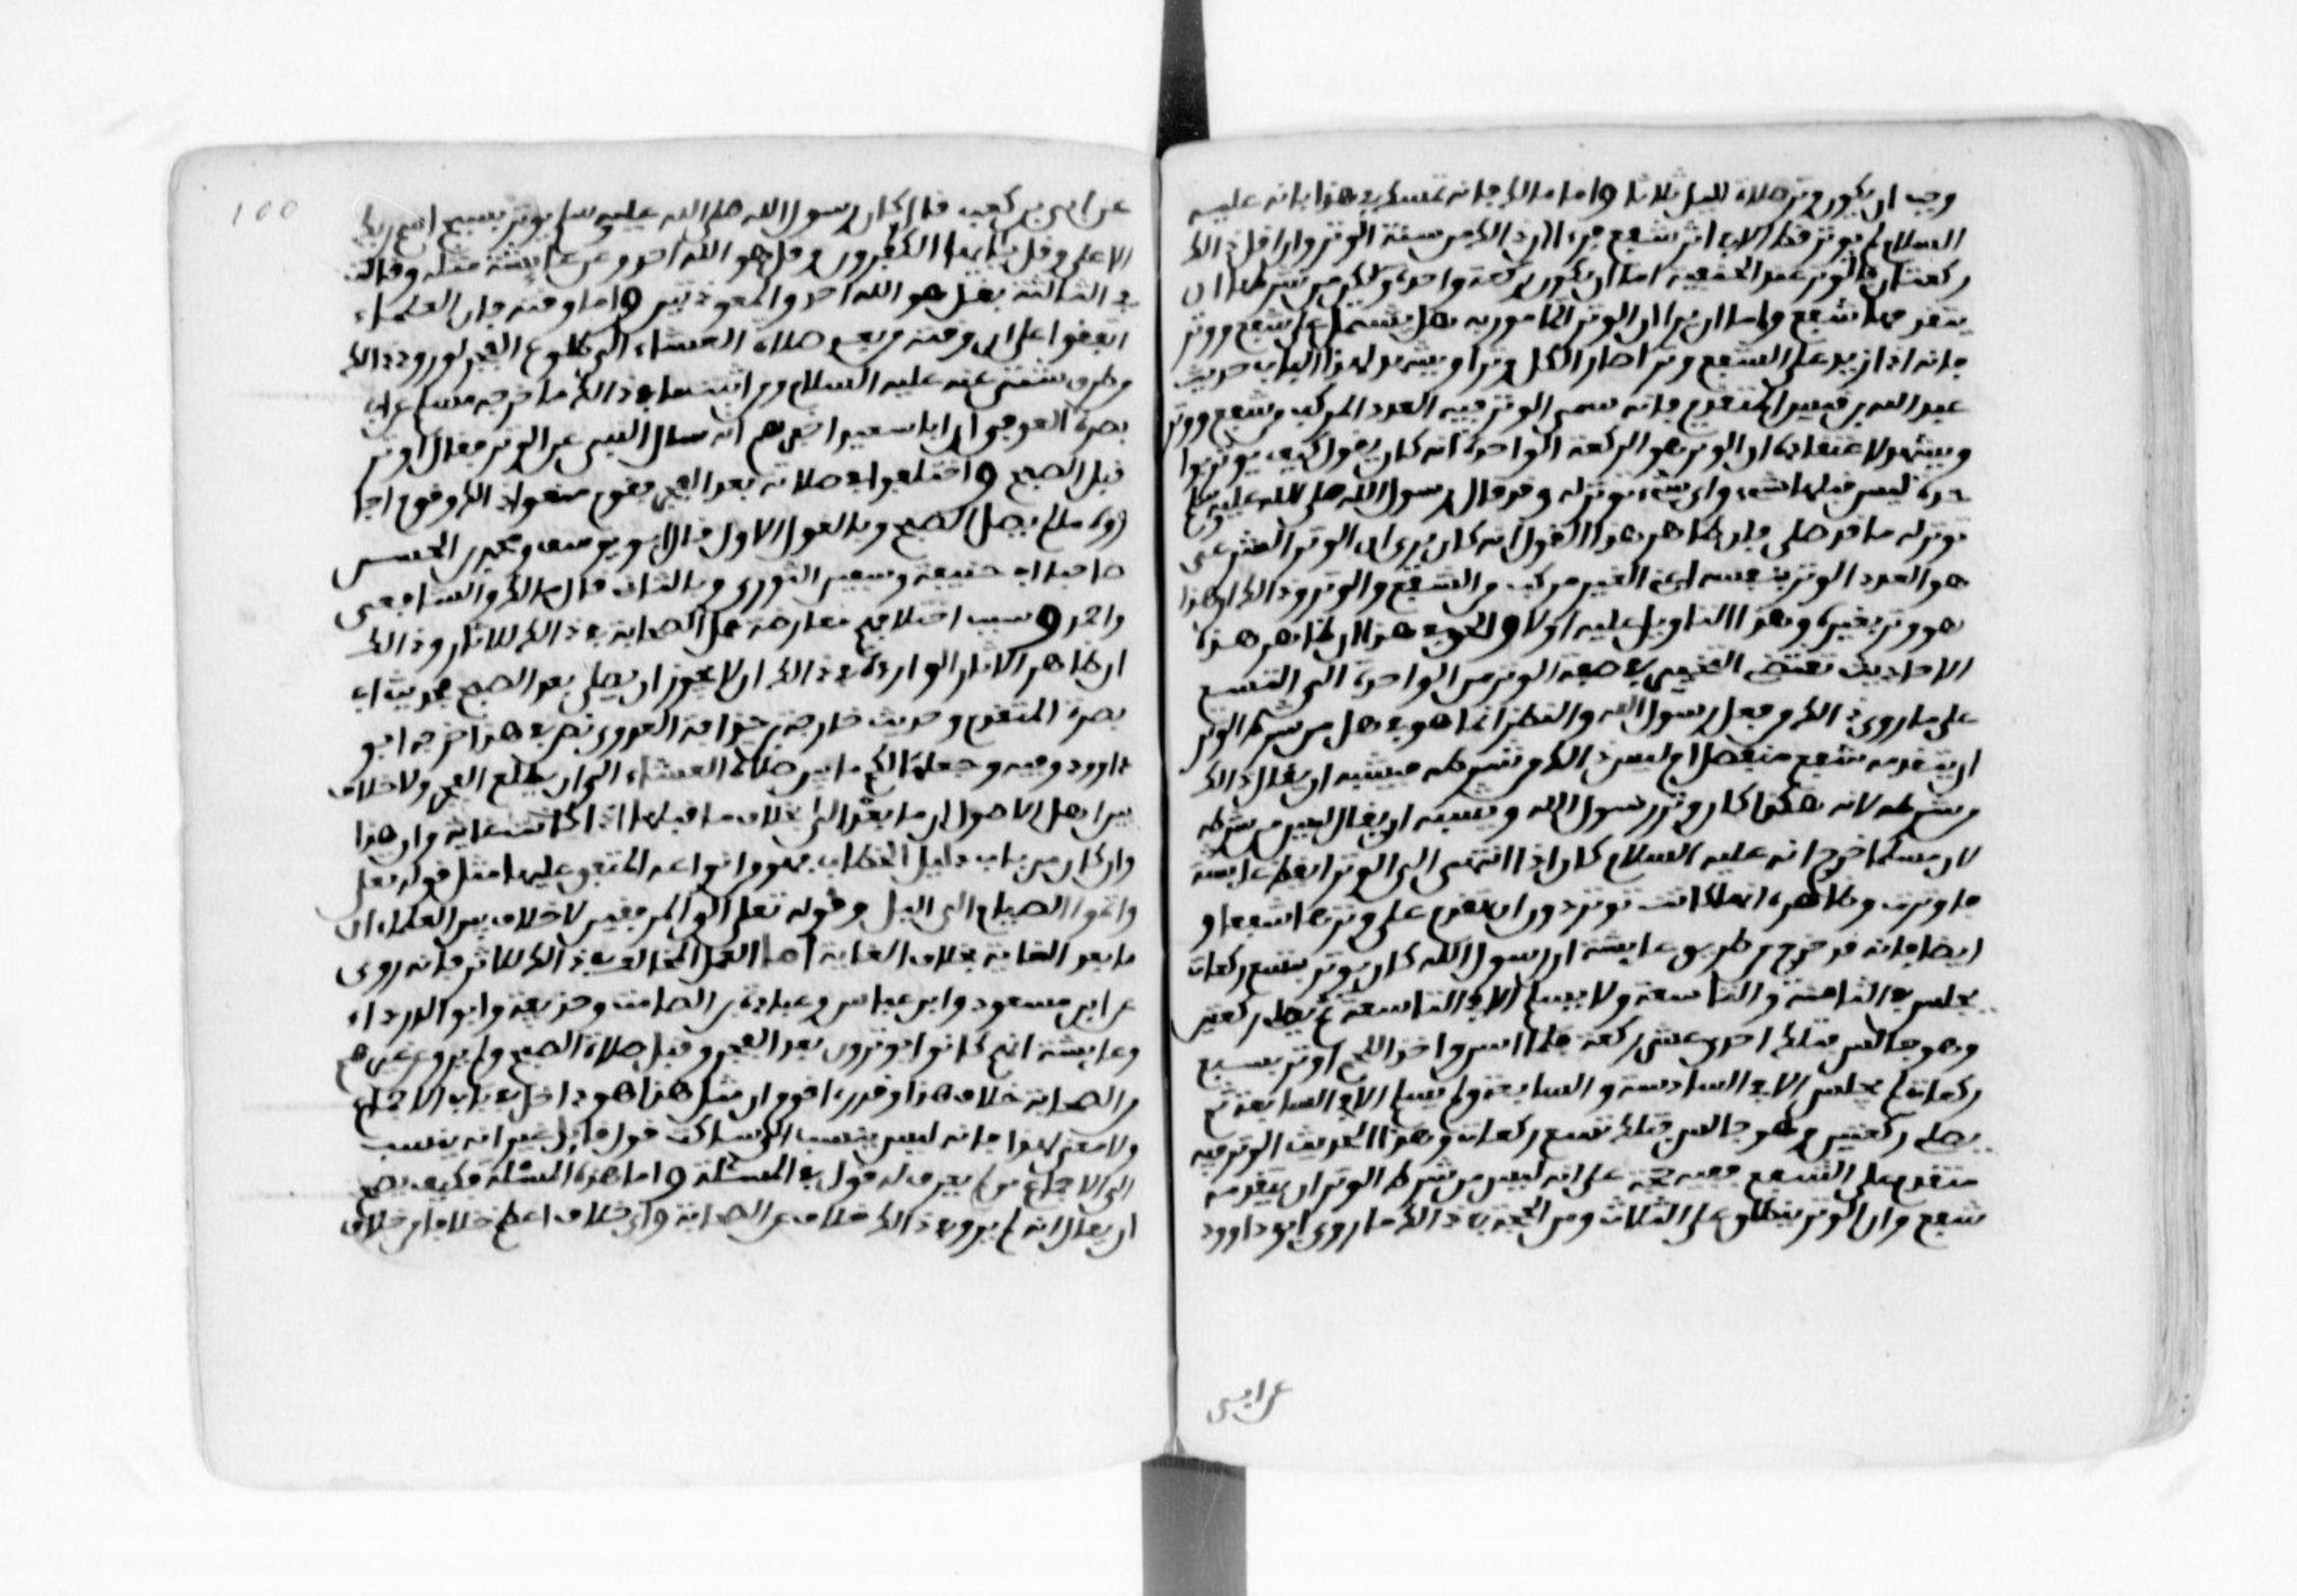 وجب ان يكون وتر صلاة الليل ثلاثا واما مالك فانه تمسك في هذا بانه عليه
السلام لم يوتر قط الا في اثر شفع فرءا ان ذالك من سنة الوتر وان اقل ذالك
ركعتان فالوتر عند الحقيقة اما ان يكون ركعة واحدة ولكن من شرطها ان
يتقدمها شفع واما ان يرا ان الوتر المامور به هل يشتمل على شفع ووتر
فانه اذا زيد على الشفع وتر صار الكل وترا ويشهد لهذا الباب حديث
عبد الله بن قيس المتقدم فانه سمى الوتر فيه العدد المركب من شفع ووتر
ويشهد لاعتقاده ان الوتر هو الركعة الواحدة انه كان يقول كيف يوتر بوا
حدة ليس قبلها شيء واي شيء توتر له وقد قال رسول الله صلى الله عليه وسلم
توتر له ما قد صلى فان ظاهر هذا القول انه كان يرى ان الوتر الشرعي
هو العدد الوتر بنفسه اعني الغير مركب من الشفع والوتر وذالك ان هذا
هو وتر بغيره وهذا التاويل عليه اولا والحق في هذا ان ظاهر هذه
الاحاديث تقتضي التخيير في صفة الوتر من الواحدة الى التسع
على ما روى ذالك من فعل رسول الله والنظر انما هو في هل من شرط الوتر
ان يتقدمه شفع منفصل ام ليس ذالك من شرطه فيشبه ان يقال ذالك
من شرطه لانه هكذا كان وتر رسول الله ويشبه ان يقال ليس من شرطه
لان مسلما خرج انه عليه السلام كان اذا انتهى الى الوتر ايقظ عايشة
فاوترت وظاهره انها كانت توتر دون ان تقدم على وترها شفعا و
ايضا فانه قد خرج من طريق عايشة ان رسول الله كان يوتر بتسع ركعات
يجلس في الثامنة والتاسعة ولا يسلم الا في التاسعة ثم يصلي ركعتين
وهو جالس فتلك احدى عشر ركعة فلما اسن واخذ اللحم اوتر بسبع
ركعات لم يجلس الا في السادسة والسابعة ولم يسلم الا في السابعة ثم
يصلي ركعتين وهو جالس فتلك تسع ركعات وهذا الحديث الوتر فيه
متقدم على الشفع ففيه حجة على انه ليس من شرط الوتر ان يتقدمه
شفع وان الوتر ينطلق على الثلاث ومن الحجة في ذالك ما روى ابو داوود
عن ابي
100
عن ابي بن كعب قال كان رسول الله صلى الله عليه وسلم يوتر بسبح اسم ربك
الاعلى وقل يايها الكفرون وقل هو الله احد وعن عايشة مثله وقالت
في الثالثة بقل هو الله احد والمعوذتين واما وقته فان العلماء
اتفقوا على ان وقته من بعد صلاة العشاء الى طلوع الفجر لورود ذالك
من طرق شتى عنه عليه السلام ومن اثبتها في ذالك ما خرجه مسلم عن ابي
بصرة العوفي ان ابا سعيد اخبرهم انه سال النبي عن الوتر فقال اوتر
قبل الصبح واختلفوا في صلاته بعد الفجر فقوم منعوا ذالك وقوم اجا
زوه ما لم يصل الصبح وبالقول الاول قال ابو يوسف ومحمد بن الحسن
صاحبا ابي حنيفة وسعيد الثوري وبالثاني قال مالك والشافعي
واحمد وسبب اختلافهم معارضة عمل الصحابة في ذالك للاثار وذالك
ان ظاهر الاثار الواردة في ذالك ان لا يجوز ان يصلي بعد الصبح كحديث ابي
بصرة المتقدم وحديث خارجة بن حذافة العدوي نص في هذا خرجه ابو
داوود وفيه وجعلها لكم ما بين صلاة العشاء الى ان يطلع الفجر ولا خلاف
بين اهل الاصول ان ما بعد الى بخلاف ما قبلها اذا كانت غاية وان هذا
وان كان من باب دليل الخطاب فهو من انواعه المتفق عليها مثل قوله تعلى
واتموا الصيام الى اليل وقوله تعلى الى المرفقين لا خلاف بين العلماء ان
ما بعد الغاية بخلاف الغاية اما العمل المخالف في ذالك للاثر فانه روى
عن ابن مسعود وابن عباس وعبادة بن الصامت وحذيفة وابو الدرداء
وعايشة انهم كانوا يوترون بعد الفجر وقبل صلاة الصبح ولم يرو عن غيرهم
من الصحابة خلاف هذا وقد رءا قوم ان مثل هذا هو داخل في باب الاجماع
ولا معنى لهذا فانه ليس ينسب الى ساكت قول قايل اعني انه ينسب
الى الاجماع من لم يعرف له قول في المسئلة واما هذه المسئلة فكيف يصح
ان يقال انه لم يرو في ذالك خلاف عن الصحابة واي خلاف اعظم من خلاف